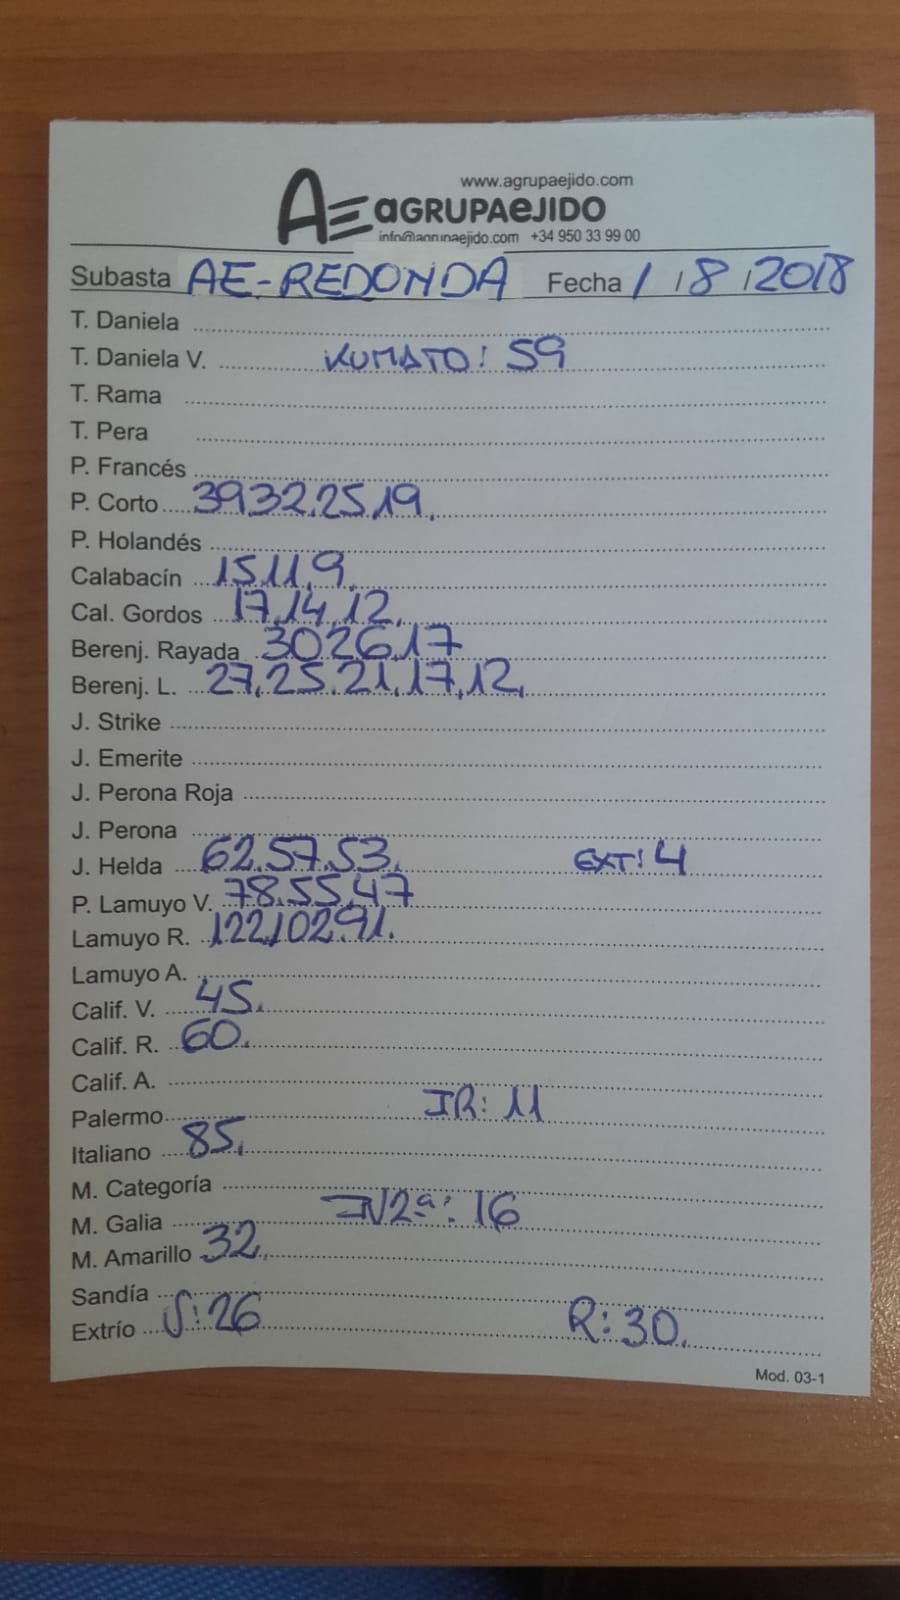 www.agrupaejido.com
AE aGRUPAeJIDO
info@agrupaejido.com +34 950 33 99 00
Subasta AE-REDONDA Fecha 1 / 8 / 2018
T. Daniela
T. Daniela V. KUMATO: 59
T. Rama
T. Pera
P. Francés
P. Corto 39.32.25.19.
P. Holandés
Calabacín 15.11.9.
Cal. Gordos 17.14.12.
Berenj. Rayada 30.26.17
Berenj. L. 27.25.21.17.12.
J. Strike
J. Emerite
J. Perona Roja
J. Perona
J. Helda 62.57.53. EXT: 4
P. Lamuyo V. 78.55.47
Lamuyo R. 122.102.91.
Lamuyo A.
Calif. V. 45.
Calif. R. 60.
Calif. A.
Palermo IR: 11
Italiano 85.
M. Categoría
M. Galia IN2ª: 16
M. Amarillo 32.
Sandía
Extrío S: 26 R: 30.
Mod. 03-1